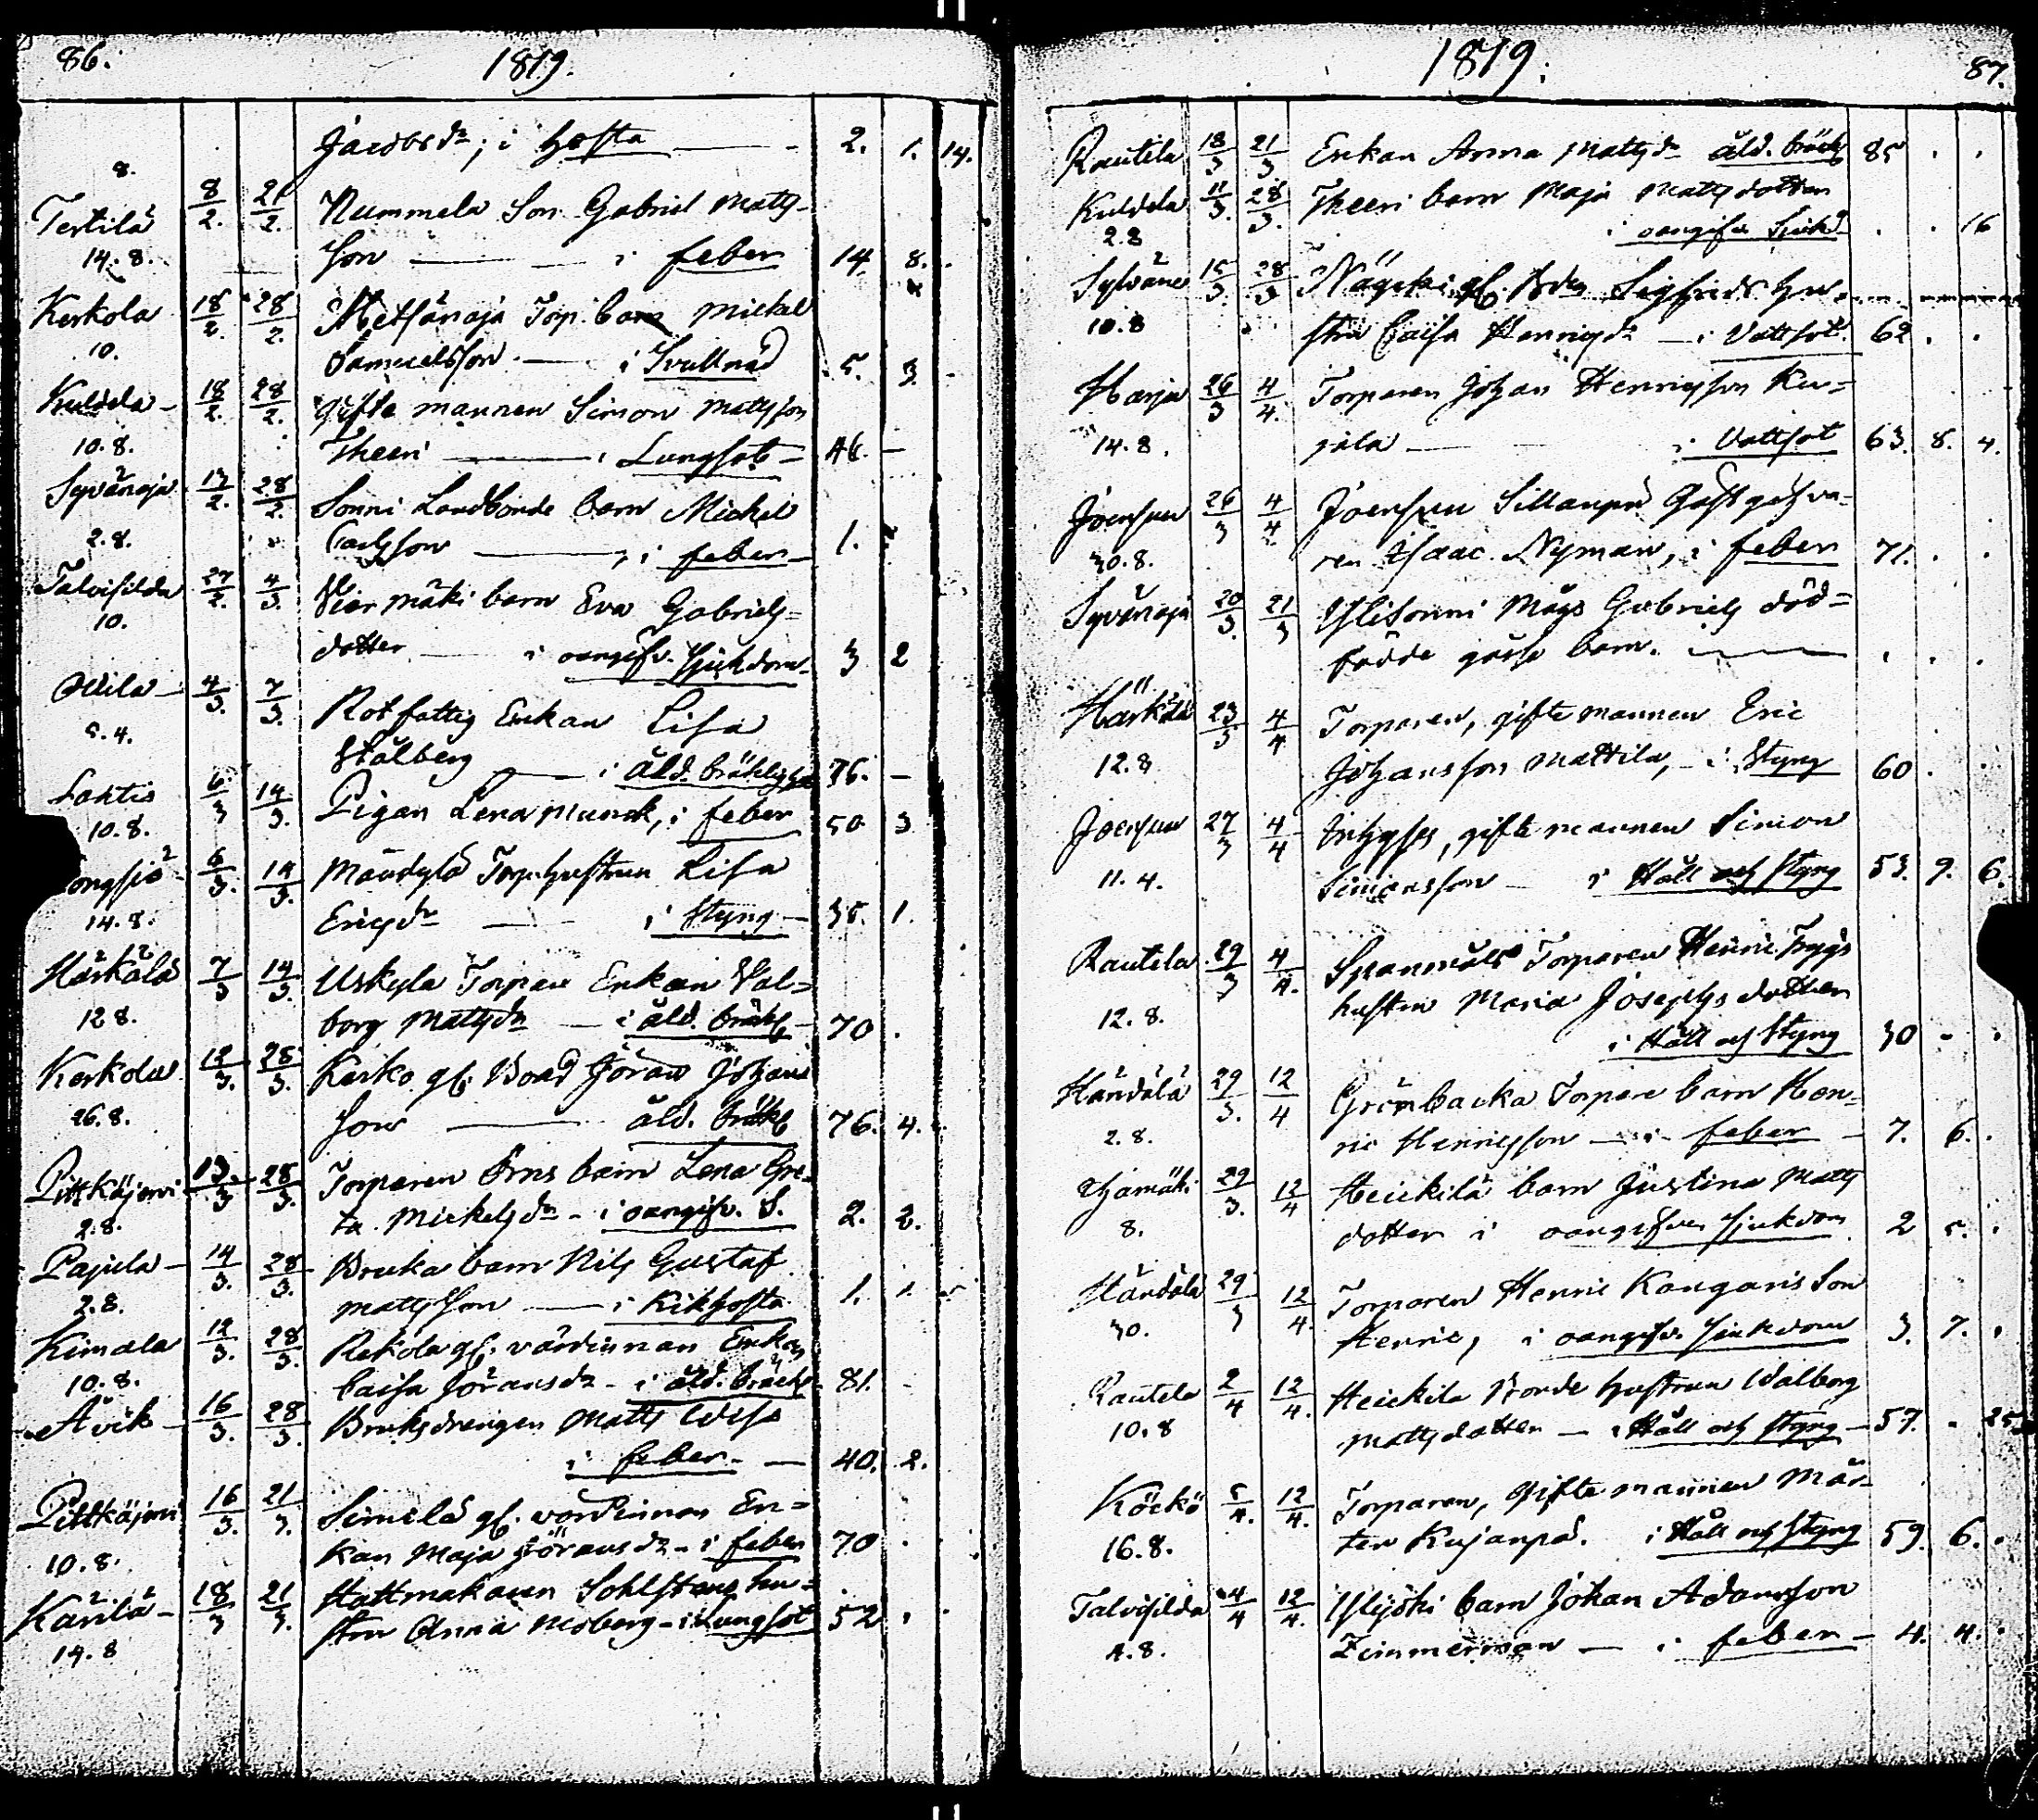 86.
1819.
Jacobsdr; i hosta — 2. 1. 14.
8.
Tertilä 8/2. 21/2. Nummela Son Gabriel Matts-
14. 8. son — i feber 14. 8.
Kerkola 18/2 28/2. Metsänoja Torp. barn Mickel
10. Samuelsson — i Svullnad 5. 3.
Kuldela 18/2. 28/2. gifte mannen Simon Mattsson
10. 8. Theeri — i Lungsot — 46. —
Syvänoja 13/2. 28/2. Sonni Landbonde barn Michel
2. 8. Carlsson — i feber — 1.
Talvisilda 27/2. 4/3. barn Eva Gabriels-
10. dotter — i oangifv. sjukdom 3 2
4/3. 7/3. Rotfattig Enkan Lisa
5. 4. Stålberg — i åld. bräklighet 76. —
Lahtis 6/3 14/3. Pigan Lena Munck, i feber 50 3
10. 8.
6/3. 14/3. Torp. hustrun Lisa
14. 8. Ericsdr — i Styng — 35. 1.
Härkälä 7/3 14/3. Uskyla Torpare Enkan Val-
12 8. borg Mattsdr — i åld. bräkl — 70
Kerkola 12/3. 28/3. Kerko gl. Bond Jöran Johans
26. 8. son — åld. bräkl 76. 4.
Pittkäjervi 13/3 28/3. Torparen Örns barn Lena Gre-
2. 8. ta Mickelsdr - i oangifv. S. 2. 2.
Pajula — 14/3. 28/3. barn Nils Gustaf
2. 8. Mattsson — i Kikhosta 1. 1.
Kimala 12/3. 28/3. Rekola gl. värdinnan Enkan
10. 8. Caisa Jöransdr - i åld. bräckl. 81.
Åvik — 16/3. 28/3. Bruksdrengen Matts
i feber — 40. 2.
Pittkäjervi 16/3. 21/3. Simila gl. värdinnan En-
10. 8. kan Maja Jöransdr - i feber 70
Karilä — 18/3 21/3. Hattmakaren Sohlstens hu-
14. 8 stru Anna Moberg - i Lungsot 52
1819.
87.
Rautela 18/3 21/3 Enkan Anna Mattsdr åld. bräckl 85
Kuldela 11/3. 28/3. Theeri barn Maja Mattsdotter
2. 8 i oangifv. Sjukd. 16
15/3. 28/3 gl. Sigfrids hu-
10. 8 stru Caisa Henricsdr — i Vattsot. 62.
Harju 26/3 4/4. Torparen Johan Henricsson Ku-
14. 8. jala — i Vattsot 63. 8. 4.
Joensuu 26/3 4/4 Joensuu Sillanpä Gästgifva-
30. 8. ren Isaac Nyman, i feber 71.
Syvänoja 20/3. 21/3 Ylisonni Mågs Gabriels död-
födde gosse barn. —
Härkälä 23/3 4/4 Torparen, gifte mannen Eric
12. 8 Johansson Mattila, — i Styng 60
Joensuu 27/3 4/4 Inhyses, gifte mannen Simon
11. 4. Simonsson — i Håll och Styng 53. 9. 6.
Rautela 29/3 4/4. Torparen Henric Tryggs
12. 8. hustru Maria Josephsdotter
i Håll och Styng 30 -
Händälä 29/3. 12/4 Grönbacka Torpare barn Hen-
2. 8. ric Henricsson — i feber — 7. 6.
29/3. 12/4 Heickilä barn Justina Matts
8. dotter i oangifven sjukdom 2 5.
Händälä 29/3 12/4. Torparen Henric Kangaris Son
30. Henric, i oangifv. sjukdom 3. 7.
Rautela 2/4 12/4. Heickila Bonde hustrun Walborg
10. 8 Mattsdotter — i Håll och Styng — 57. - 25
Köckö 5/4. 12/4. Torparen, gifte mannen Mår-
16. 8. ten Kujanpä. i Håll och Styng 59. 6.
Talvisilda 4/4 12/4. Ylijöki barn Johan Adamsson
4. 8. Zimmerman — i feber — 4. 4.